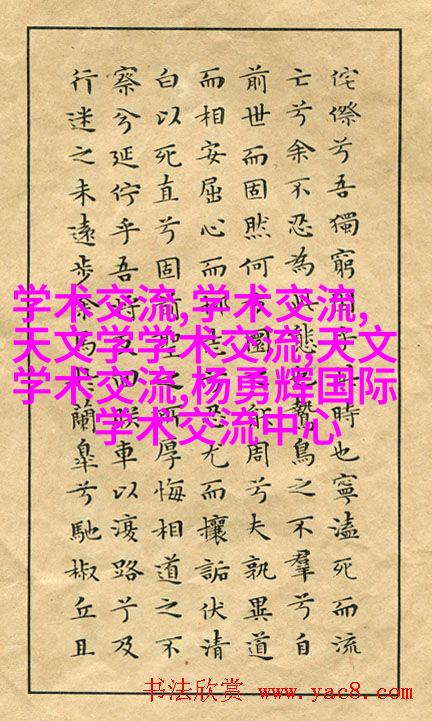 侘傺兮吾獨窮困乎此時也寧溘死而流
亡兮余不忍為此態也鷙鳥之不羣兮自
前世而固然何方圜之能周兮夫孰異道
而相安屈心而抑志兮忍尤而攘詬伏清
白以死直兮固前聖之所厚悔相道之不
察兮延佇乎吾將反回朕車以復路兮及
行迷之未遠步余馬於蘭皋兮馳椒丘且
学术交流,学术交流,
天文学学术交流,天文
学术交流,杨勇辉国际
学术交流中心
书法欣赏 www.yac8.com